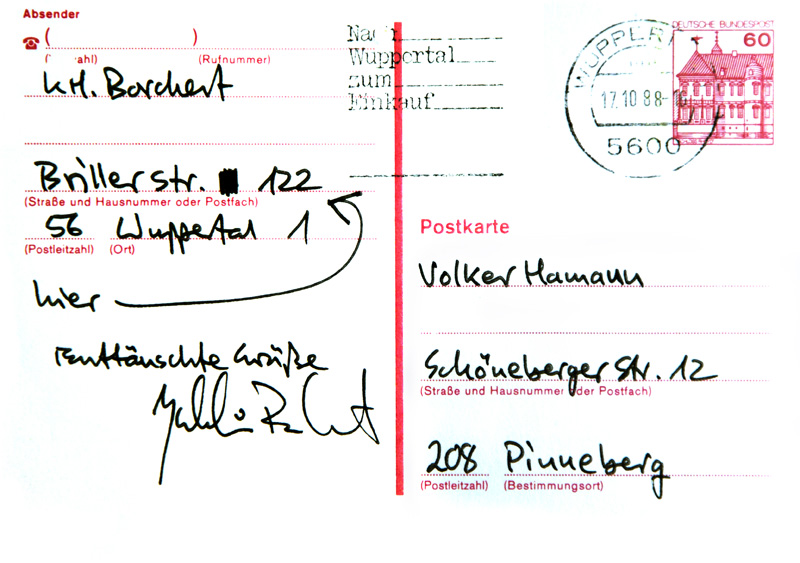 Absender
( )
(Rufnummer)
K.H. Borchert
Brillerstr. 122
(Straße und Hausnummer oder Postfach)
56 Wuppertal 1
(Postleitzahl) (Ort)
hier
enttäuschte Grüße
Nach
Wuppertal
zum
Einkauf
WUPPER
17.10.88-
5600
DEUTSCHE BUNDESPOST
60
Postkarte
Volker Hamann
Schöneberger Str. 12
(Straße und Hausnummer oder Postfach)
208 Pinneberg
(Postleitzahl) (Bestimmungsort)